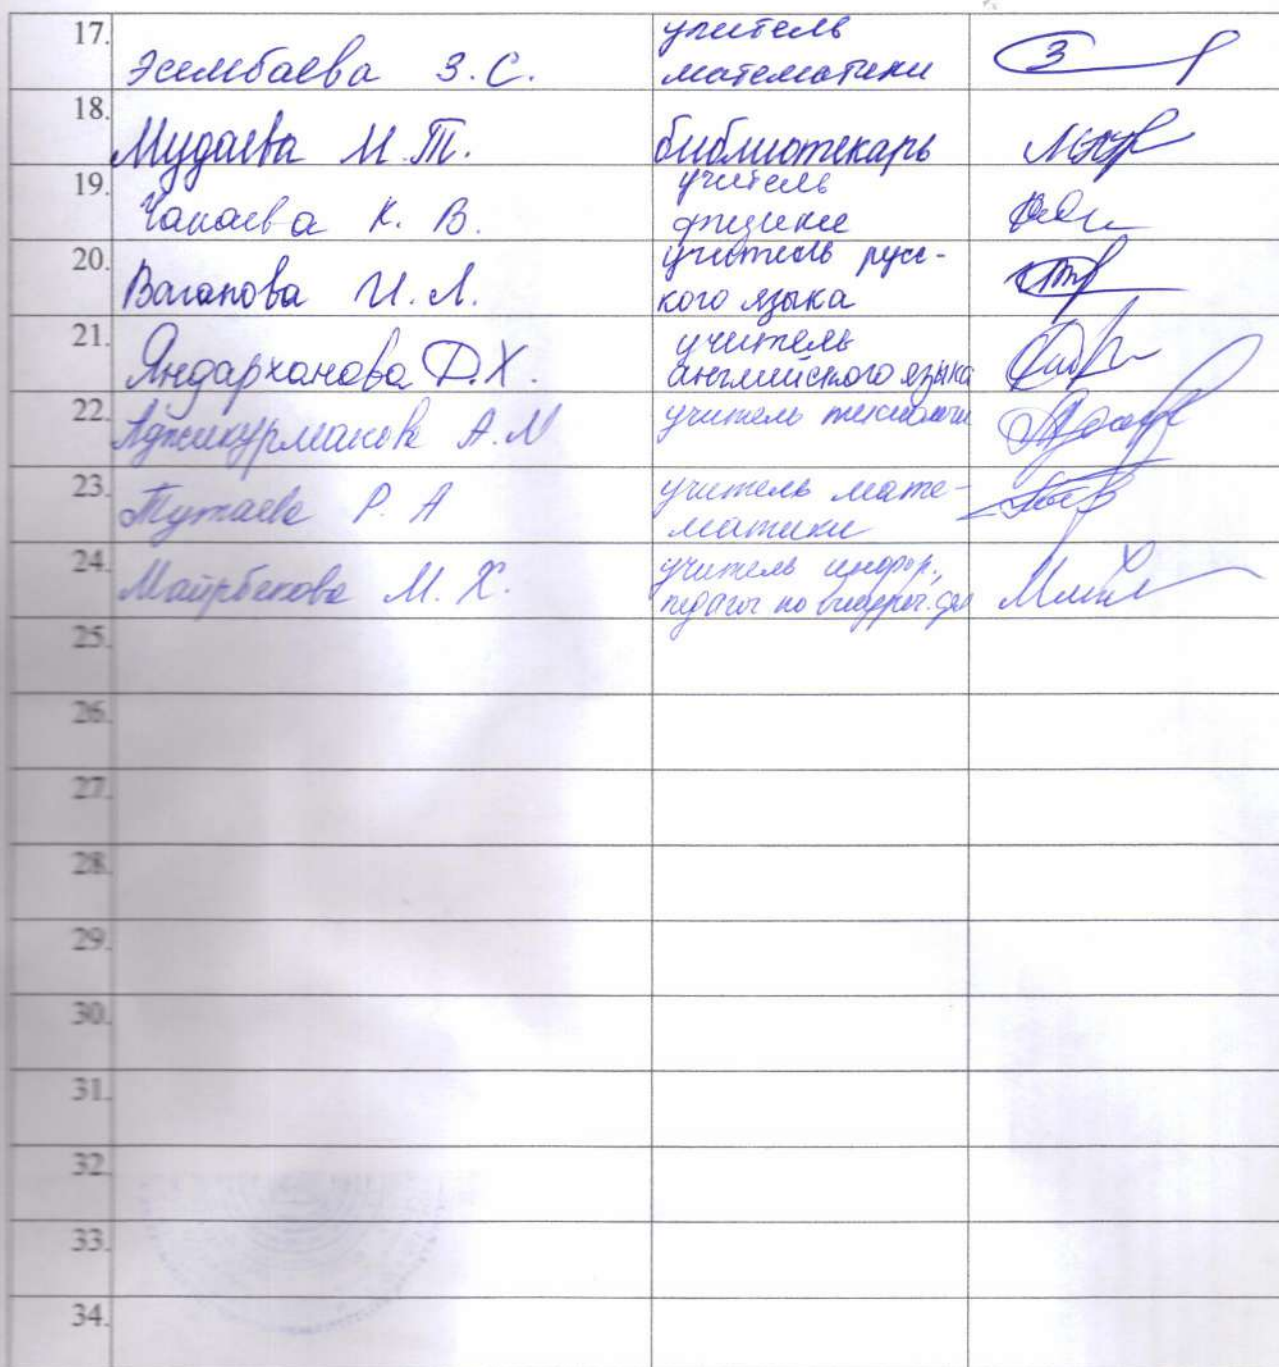 17. Эсембаева З.С. учитель
математики
18. Мудаева М.Т. библиотекарь
19. Чапаева К. В. учитель
физики
20. Ваганова И.Л. учитель рус-
кого языка
21. Яндарханова Д.Х. учитель
английского языка
22. Аджикурманов А.М учитель технологии
23. Тутаева Р. А учитель мате-
матики
24. Майрбекова М. Х. учитель инфор.,
педагог по
25.
26.
27.
28.
29.
30.
31.
32.
33.
34.